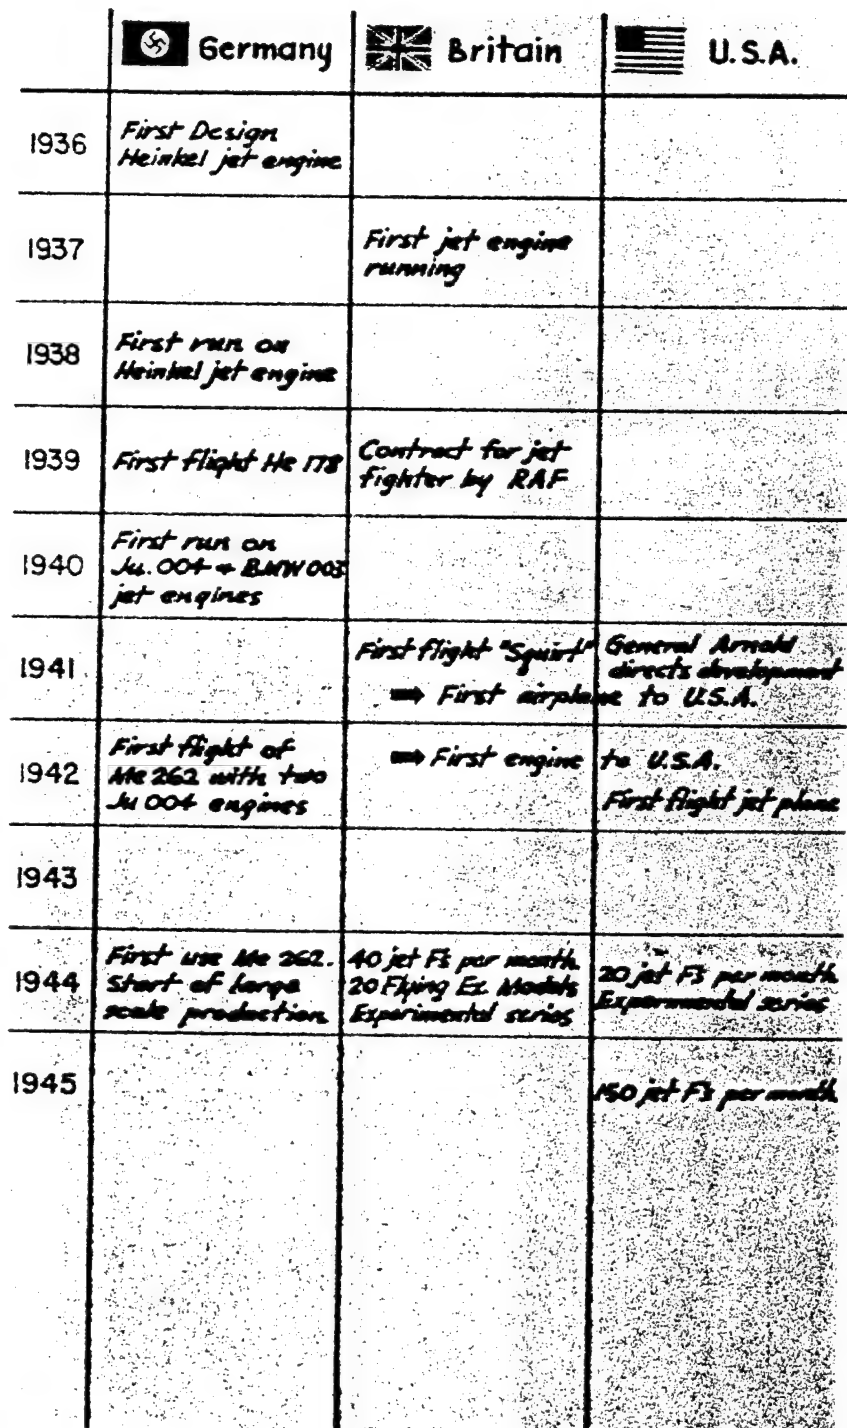 Germany Britain U.S.A.
1936
First Design
Heinkel jet engine
1937
First jet engine
running
1938
First run on
Heinkel jet engine
1939
First flight He 178
Contract for jet
fighter by RAF
1940
First run on
Ju. 004 + BMW 003
jet engines
1941
First flight "Squirt"
General Arnold
directs development
➡ First airplane to U.S.A.
1942
First flight of
Me 262 with two
Ju 004 engines
➡ First engine to U.S.A.
First flight jet plane
1943
1944
First use Me 262.
Start of large
scale production
40 jet F's per month
20 Flying Ex. Models
Experimental series
20 jet F's per month
Experimental series
1945
150 jet F's per month